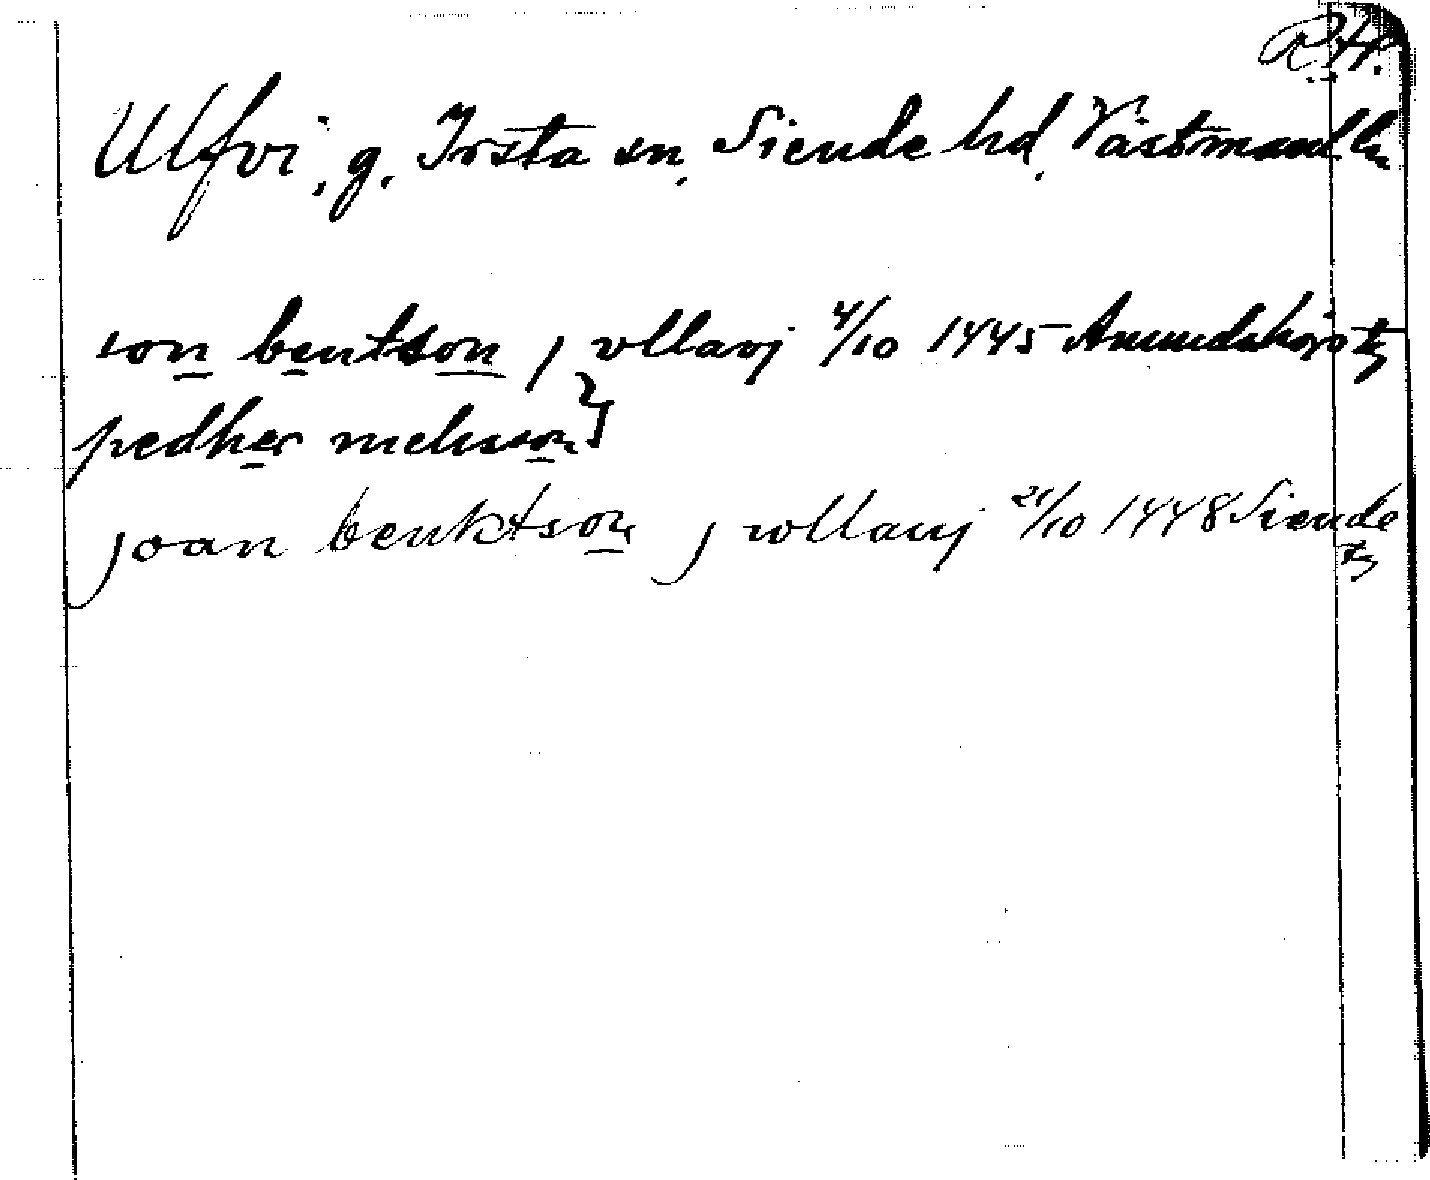 R.A.
Ulfvi, g. Irsta sn. Siende hd. Västmanl. ln
ion bentson j vllavj 4/10 1445 Anundshögs tg
pedher nielsson}
joan benktson j wllavj 21/10 1448 Siende tg